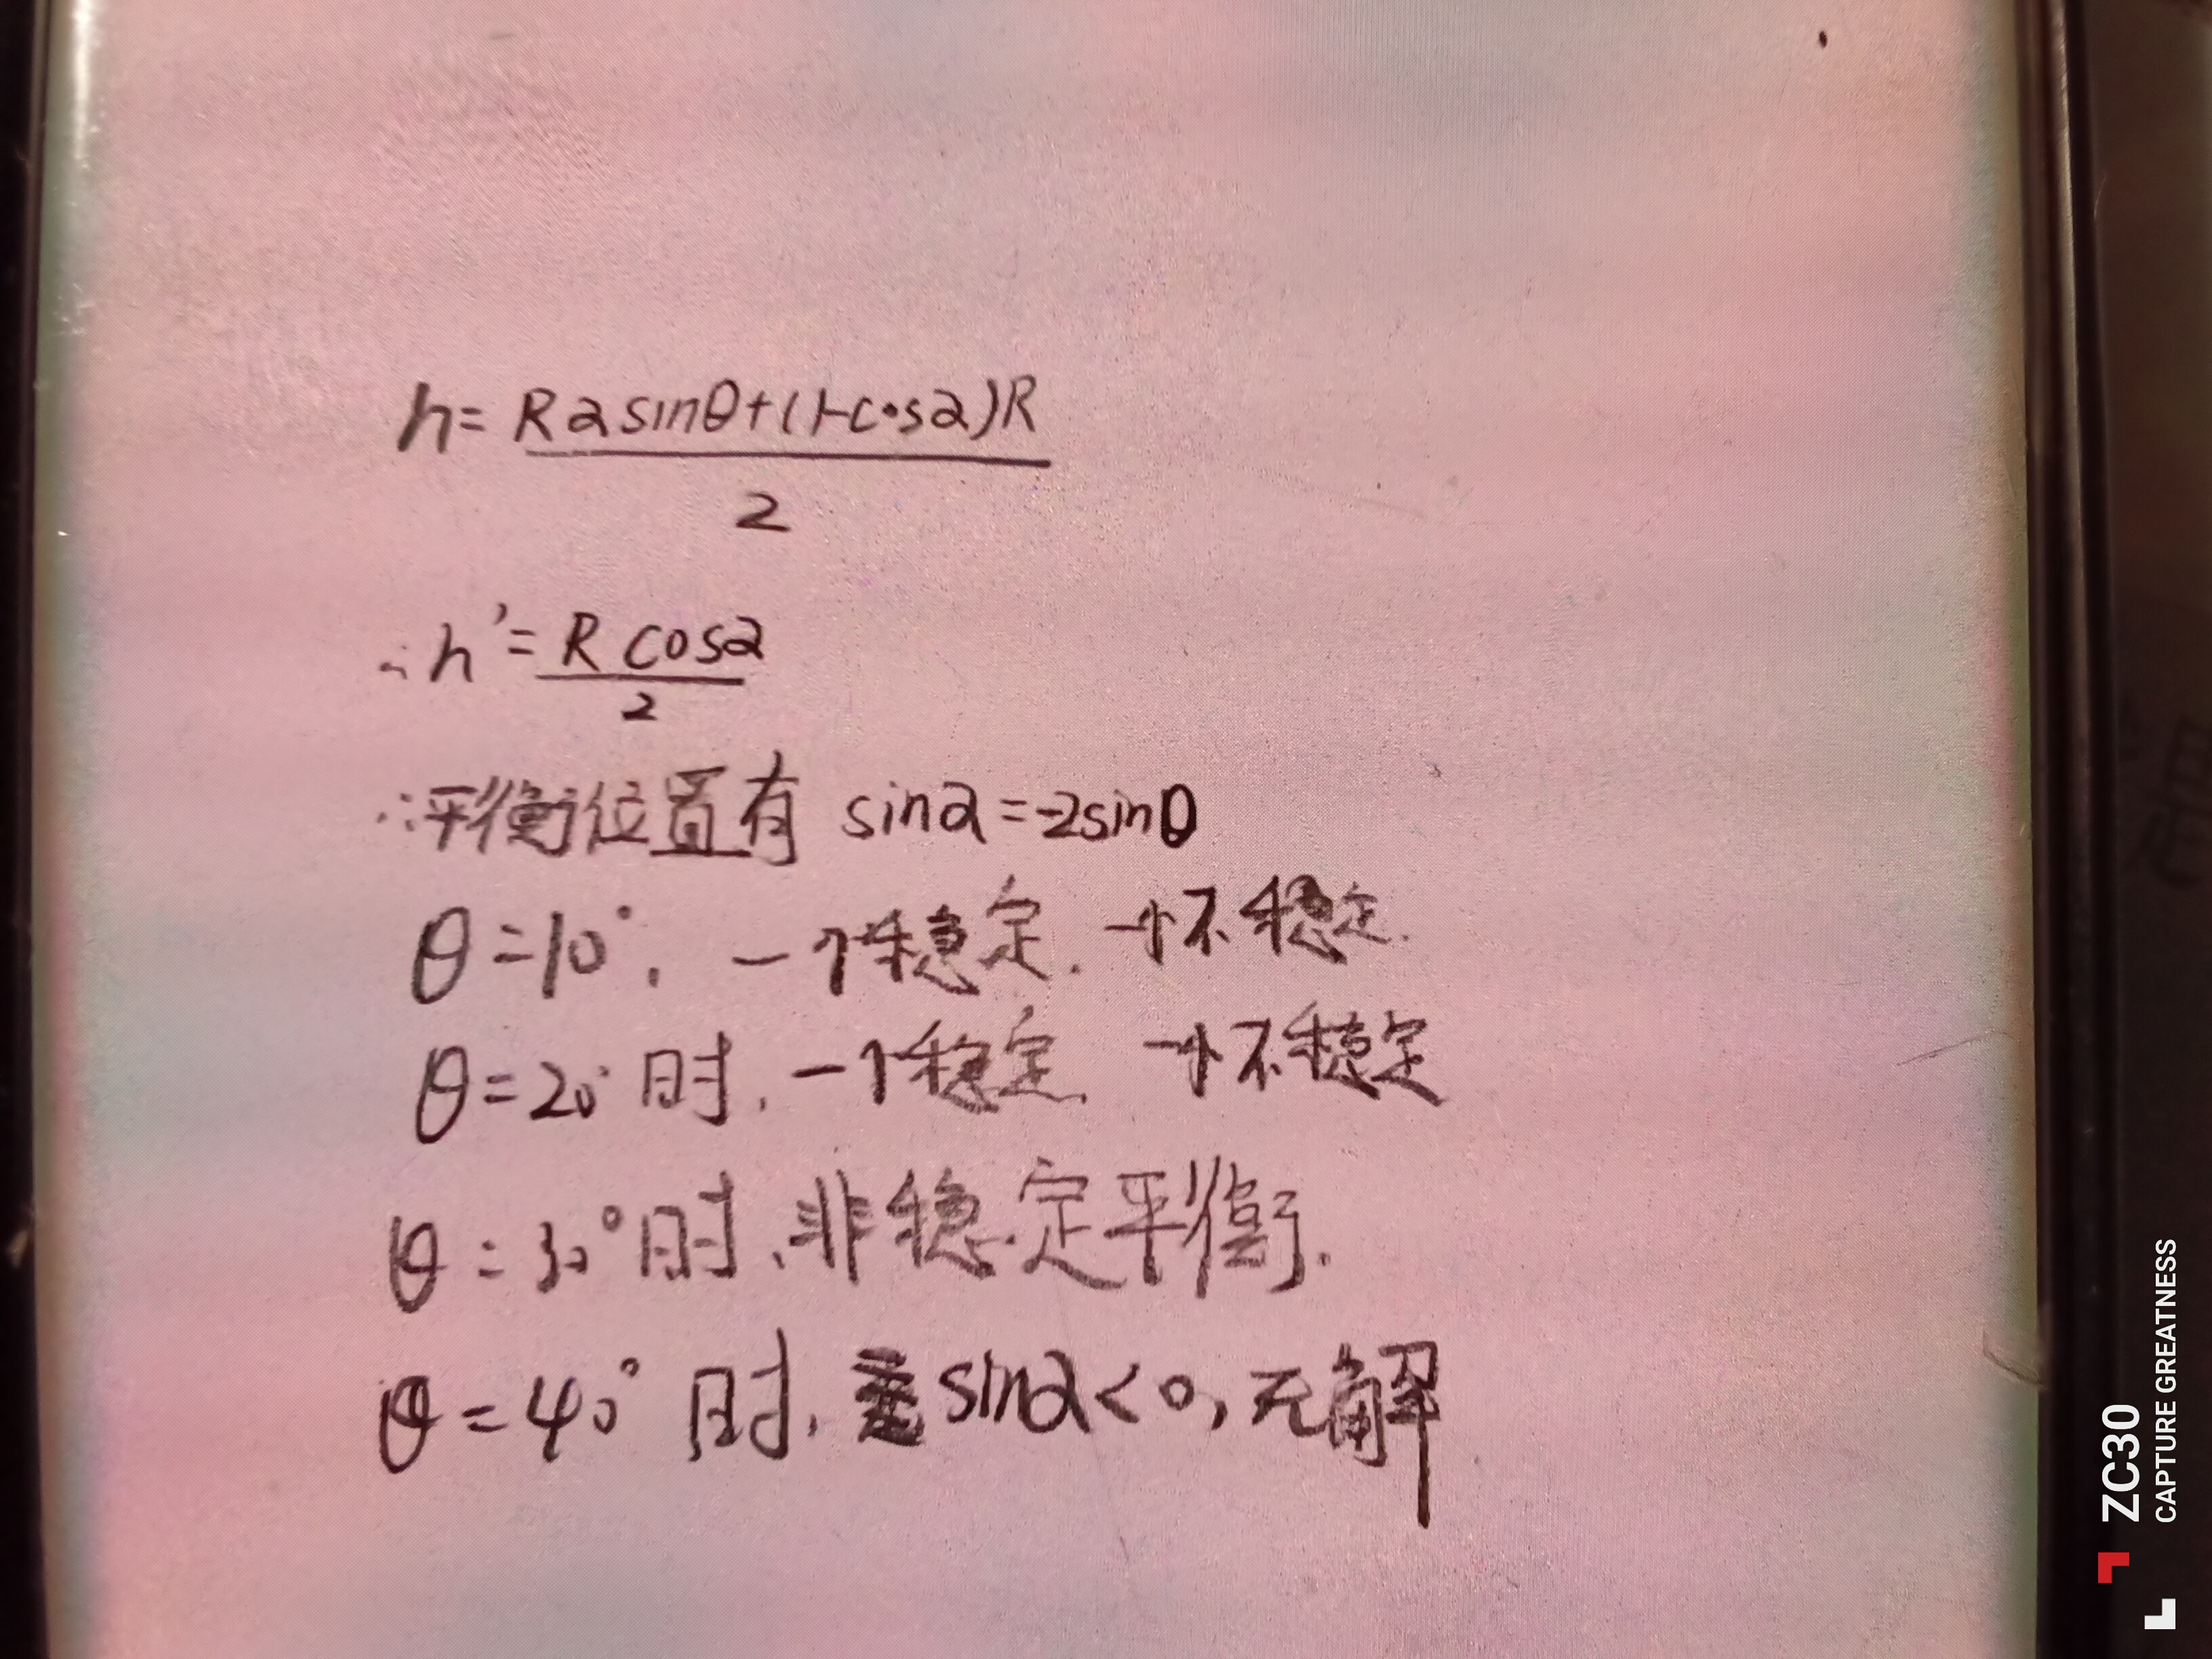 h = \frac{Rαsinθ+(1-cosα)R}{2}
∴h' = \frac{R cosα}{2}
∴平衡位置有 sinα=-2sinθ
θ=10°. 一个稳定. 一个不稳定.
θ=20°时. 一个稳定. 一个不稳定
θ=30°时.非稳定平衡.
θ=40°时. sinα<0,无解
ZC30
CAPTURE GREATNESS